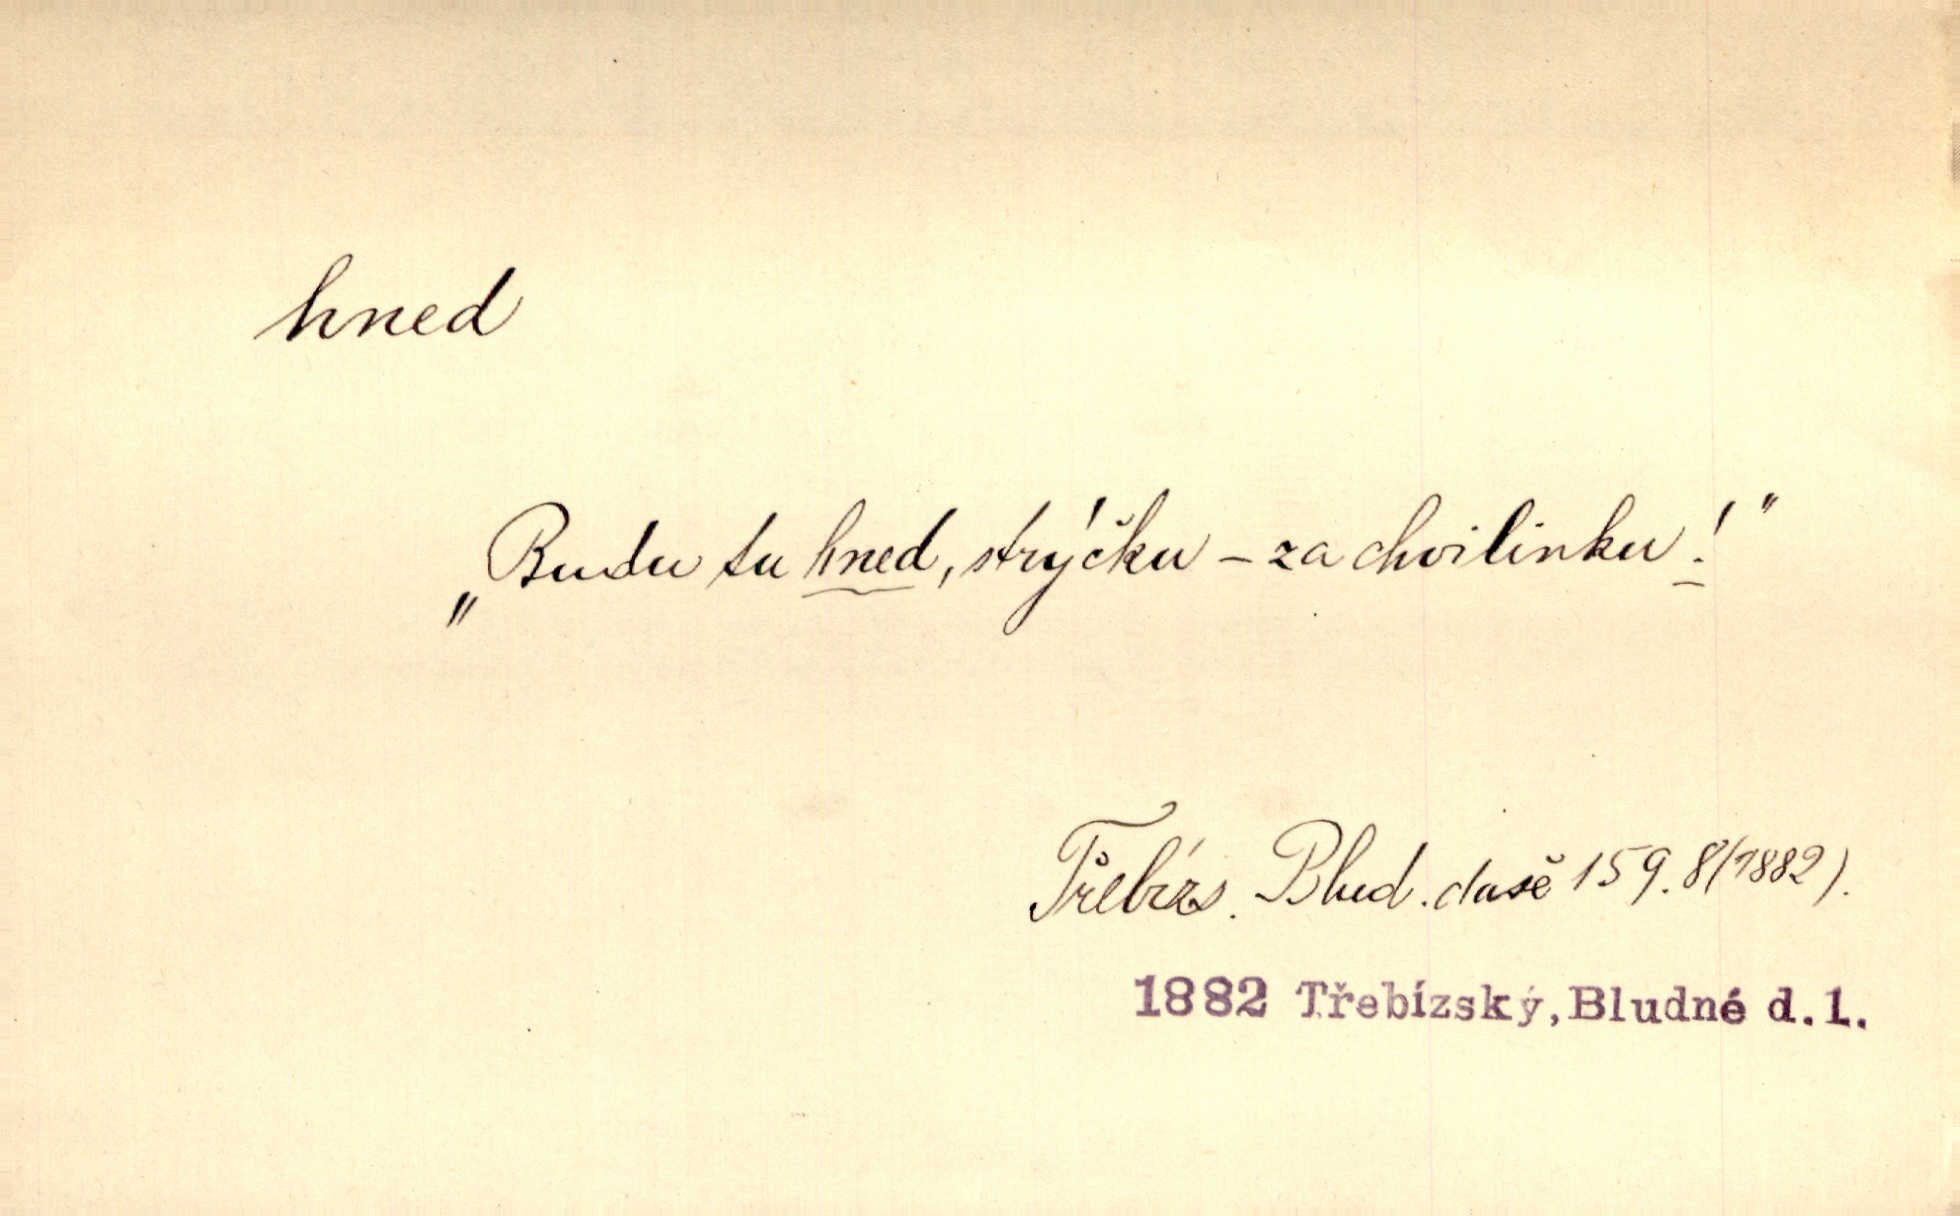 hned
„Budu tu hned, strýčku – za chvilinku!"
Třebízs. Blud. dušě 159. 8 (1882).
1882 Třebízský, Bludné d.1.